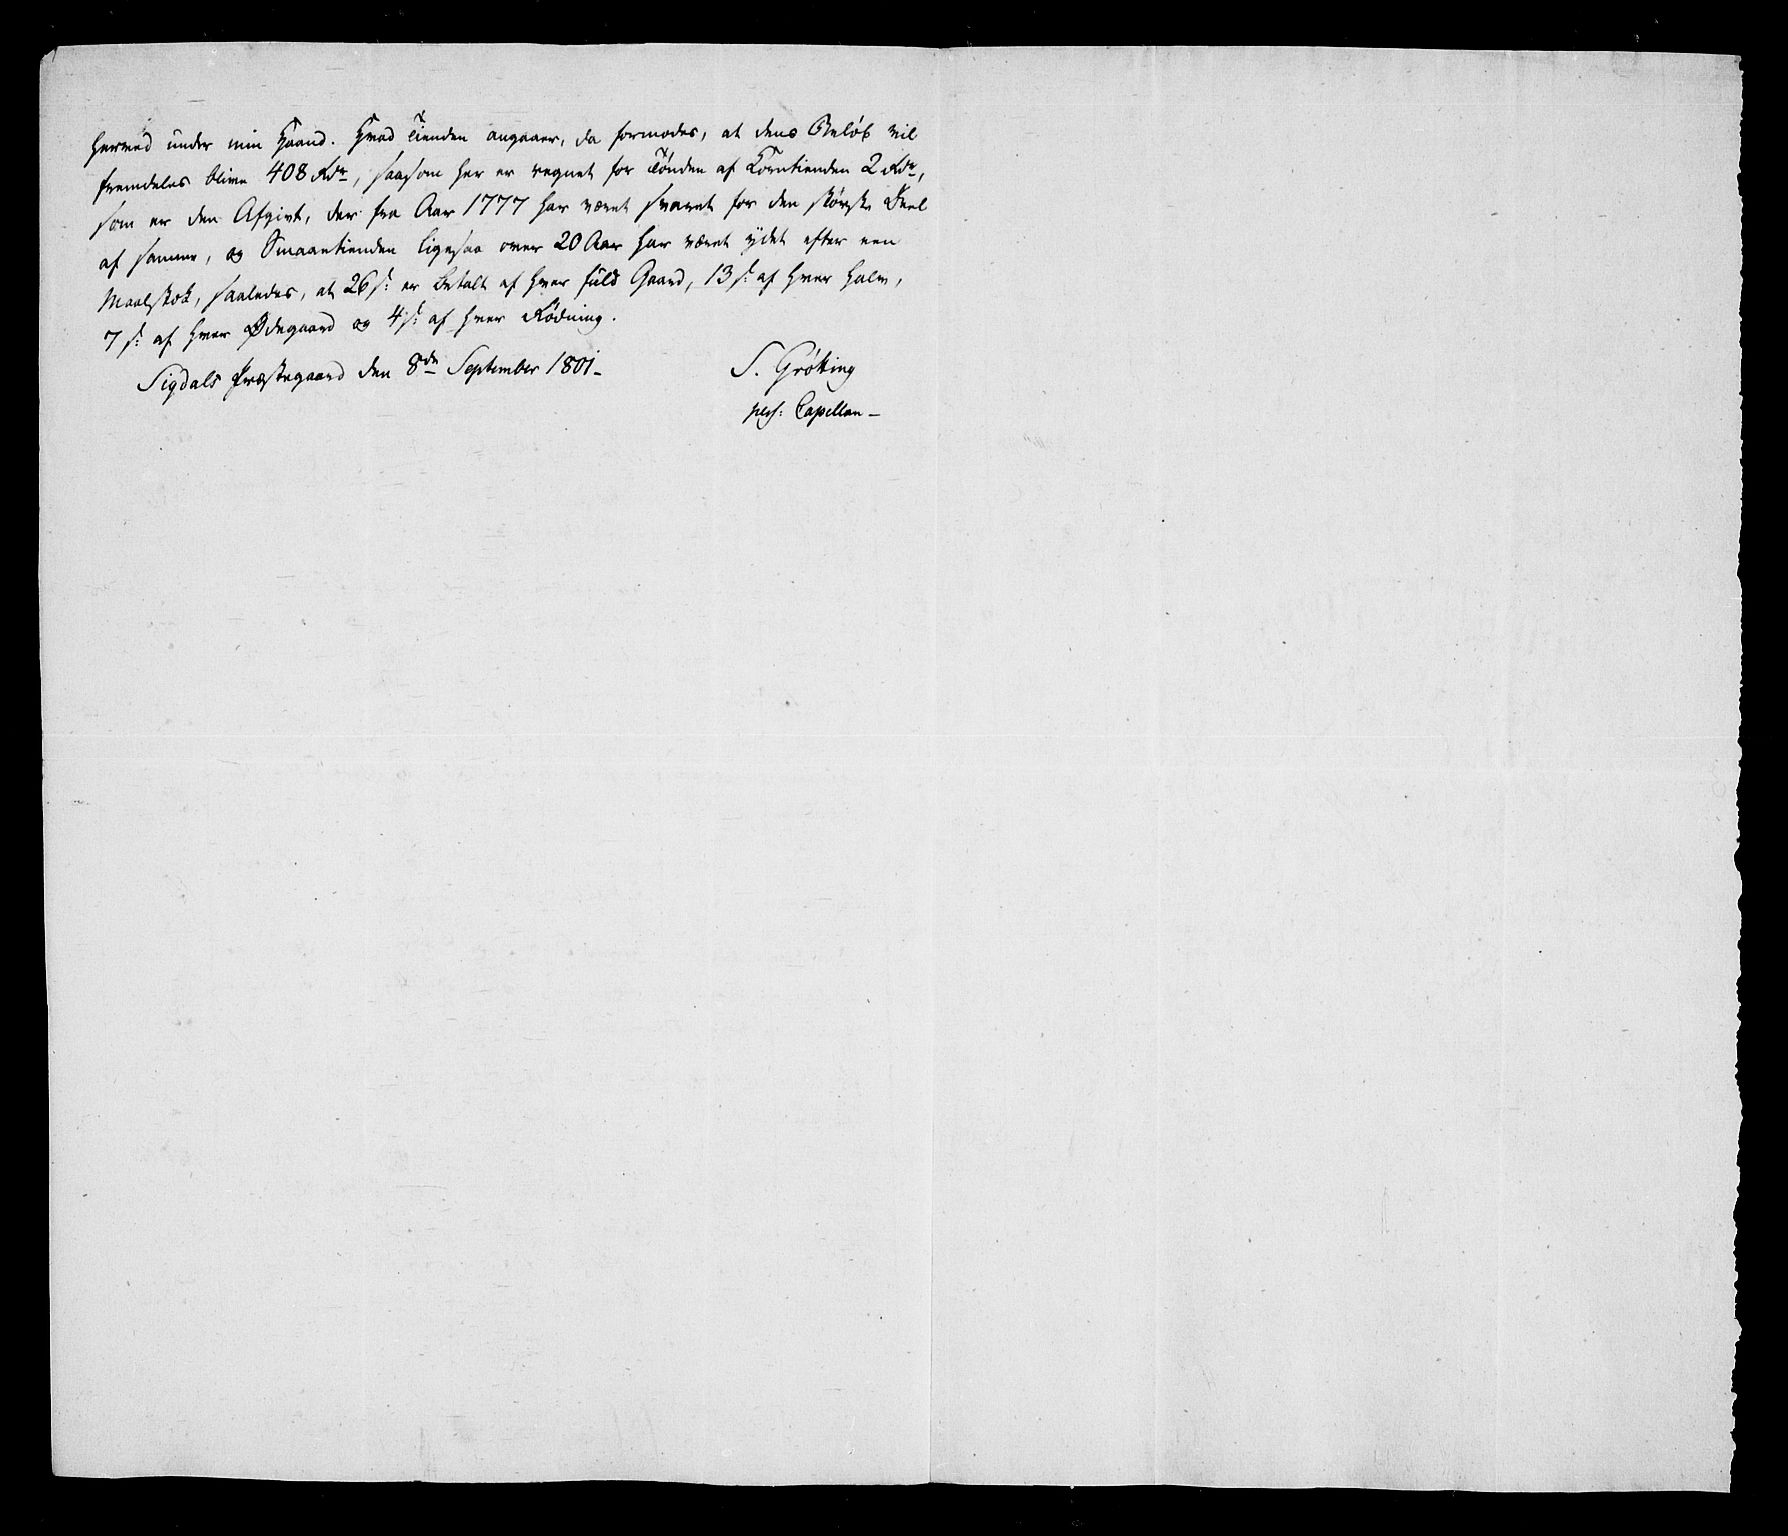 herved under min Haand. Hvad Tienden angaaer, da formodes, at dens Beløb vil
fremdeles blive 408 Rdr, saasom her er regnet for Tønden af Korntienden 2 Rdr,
som er den Afgivt, der fra Aar 1777 har været svaret for den største Deel
af samme, og Smaaetienden ligesaa over 20 Aar har været ydet efter een
Maalestok, saaledes, at 26 s: er betalt af hver fuld Gaard, 13 s: af hver halv,
7 s: af hver Ødegaard og 4 s: af hver Rødning.
Sigdals Præstegaard den 8de September 1801.
S. Grøtting
pers: Capellan